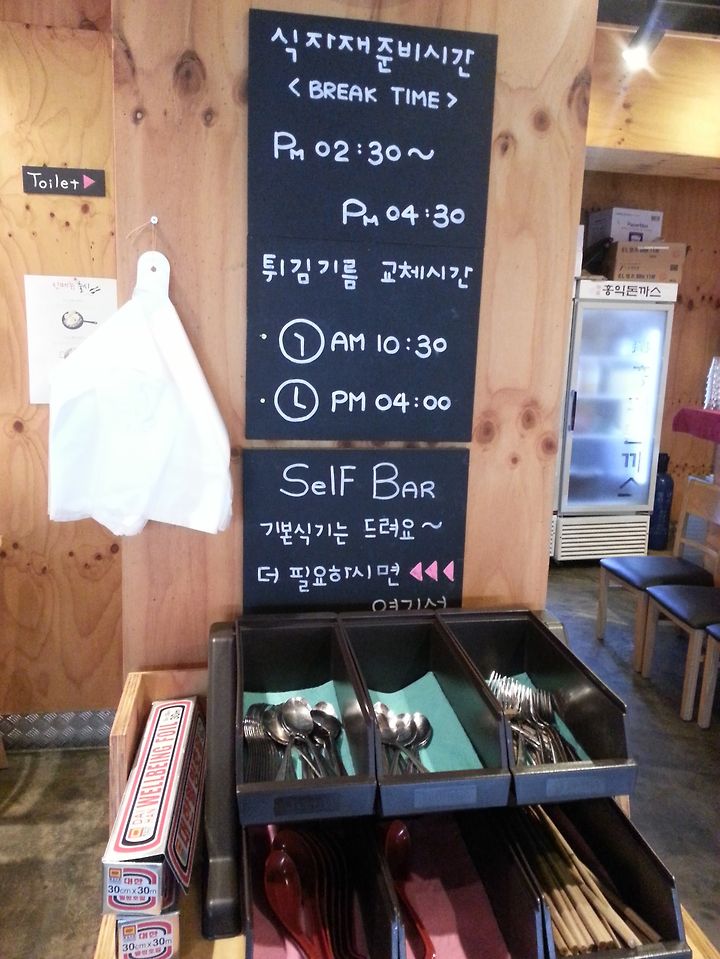 식자재준비시간
< BREAK TIME >
PM 02:30 ~
PM 04:30
튀김기름 교체시간
· AM 10:30
· PM 04:00
Self BAR
기본식기는 드려요~
더 필요하시면
여기서
Toilet
홍익돈까스
WELLBEING FOIL
대한
30cm x 30m
대한
30cm x 30m